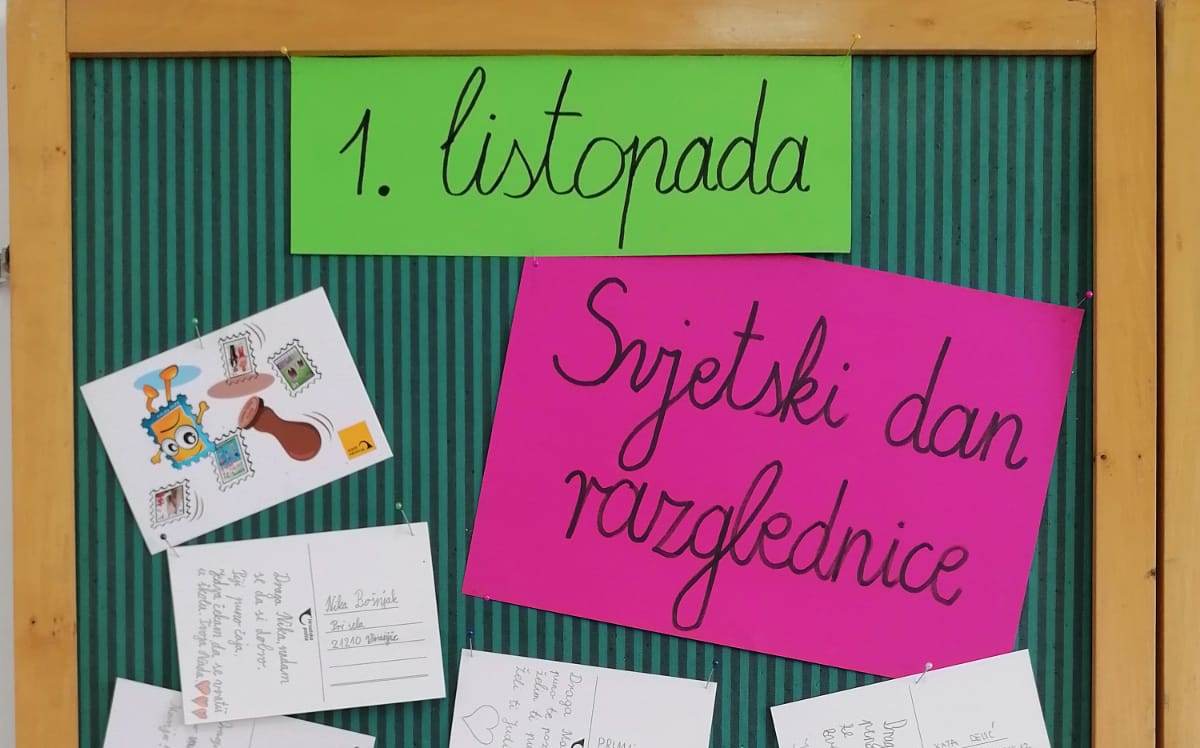 1. listopada
Svjetski dan
razglednice
Draga Nika, nadam
se da si dobro.
Piji puno čaja,
jedva čekam da se vratiš
u školu. Tvoja Nada
Nika Bošnjak
21210
Draga
puno te
želim ti
želi ti
Draga
KATA DELIĆ